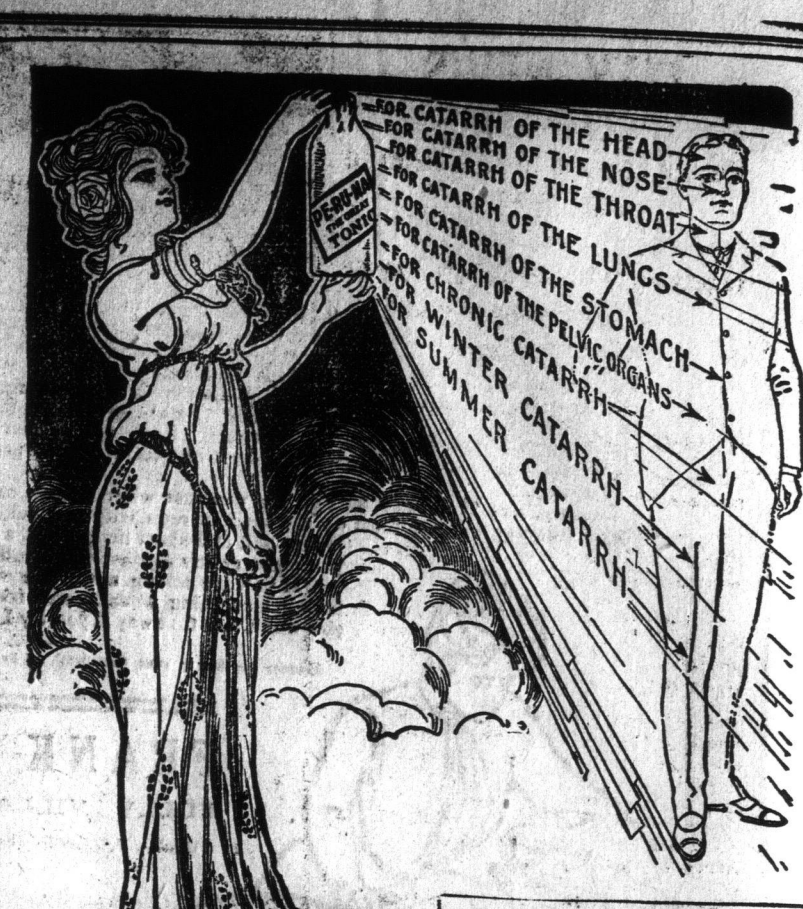 PE-RU-NA
THE GREAT
TONIC
FOR CATARRH OF THE HEAD
FOR CATARRH OF THE NOSE
FOR CATARRH OF THE THROAT
FOR CATARRH OF THE LUNGS
FOR CATARRH OF THE STOMACH
FOR CATARRH OF THE PELVIC ORGANS
FOR CHRONIC CATARRH
FOR WINTER CATARRH
FOR SUMMER CATARRH